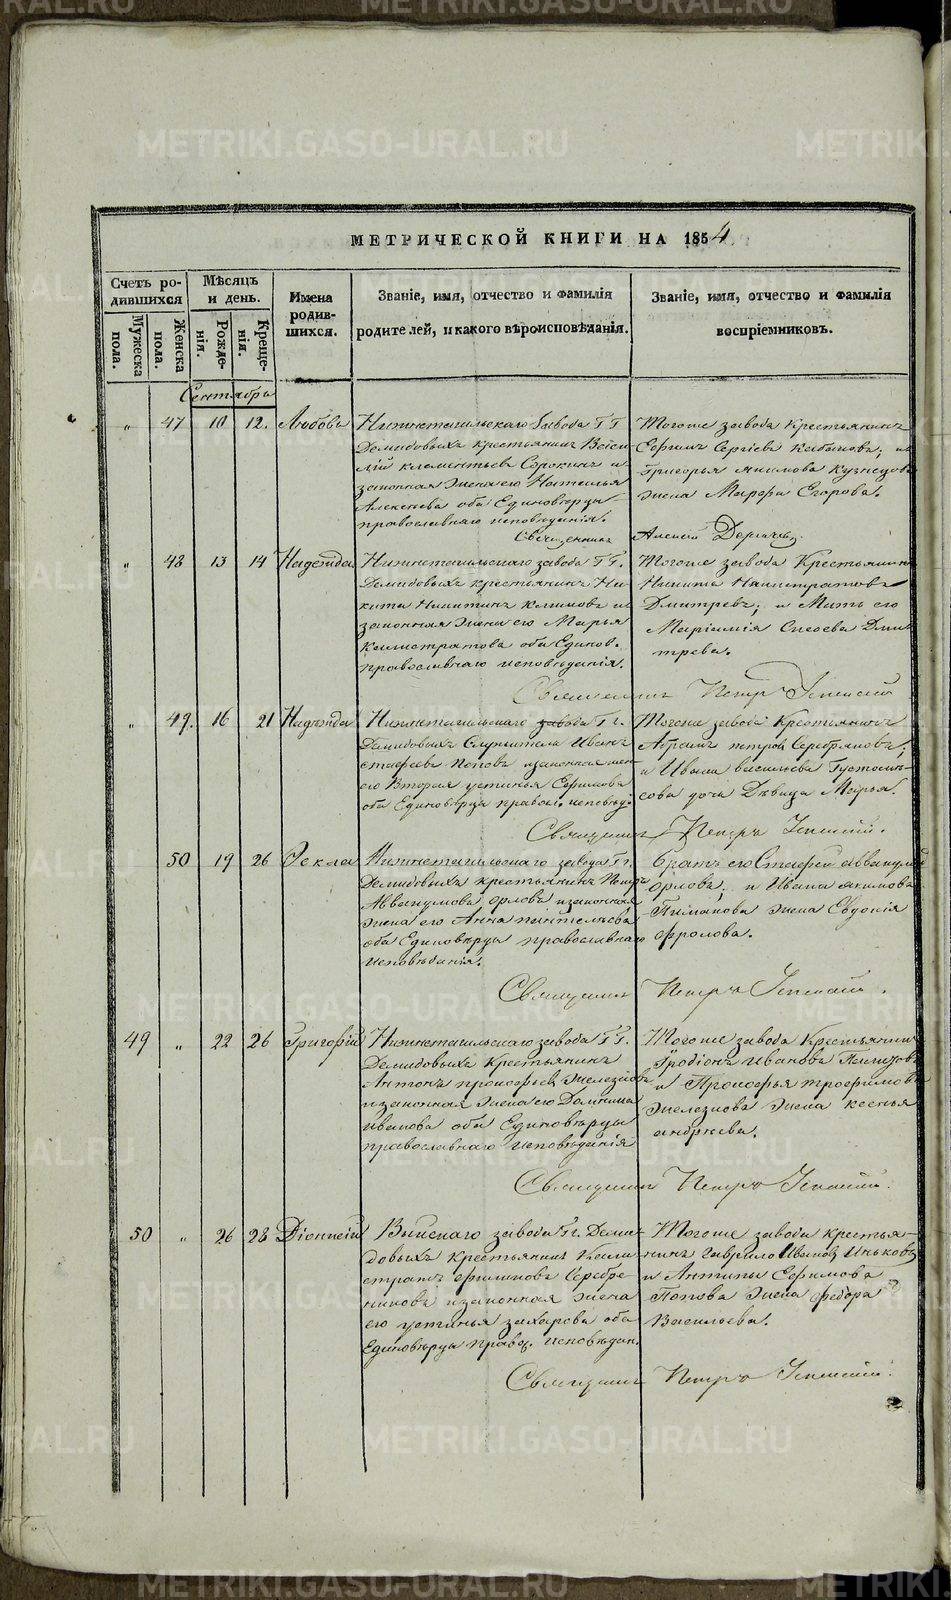 МЕТРИЧЕСКОЙ КНИГИ НА 1854
Счетъ ро-
дившихся
Мужеска
пола.
Женска
пола.
Мѣсяцъ
и день.
Рожде-
нія.
Креще-
нія.
Имена
родив-
шихся.
Званіе, имя, отчество и фамилія
родителей, и какого вѣроисповѣданія.
Званіе, имя, отчество и фамилія
воспріемниковъ.
Сентябрь
" 47 10 12. Любовь
Нижнетагильскаго завода ГГ
Демидовыхъ крестьянинъ Васи-
лій Клементьевъ Сорокинъ и
законная жена его Наталья
Алексѣева оба Единовѣрцы
православнаго исповѣданія.
Тогоже завода Крестьянинъ
Ефимъ Сергіевъ Кабановъ; и
Григорья Якимова Кузнецова
жена Марѳа Егорова.
Священникъ Алексій
" 48 13 14 Надежда
Нижнетагильскаго завода ГГ.
Демидовыхъ крестьянинъ Ни-
кита Никитинъ Климовъ и
законная жена его Марья
Калистратова оба Единов.
православнаго исповѣданія.
Тогоже завода Крестьянинъ
Никита Калистратовъ
Дмитревъ; и Мать его
Маріамія Дми-
трева.
Священникъ Петръ
" 49. 16 21 Надежда
Нижнетагильскаго завода Гг.
Демидовыхъ Служитель Иванъ
Поповъ и законная жена
его Вторая Устинья Ефимова
оба Единовѣрцы правосл. исповѣд.
Тогоже завода Крестьянинъ
Абрамъ Петровъ Серебряковъ;
и Ивана Васильева
дочь Дѣвица Марья.
Священникъ Петръ
50 19 26 Ѳекла
Нижнетагильскаго завода Гг.
Демидовыхъ крестьянинъ Петръ
Аввакумовъ Орловъ и законная
жена его Анна Пантелѣева
оба Единовѣрцы православнаго
исповѣданія.
братъ его Стефей Аввакумовъ
Орловъ; и Ивана Якимова
Пиманова жена Евдокія
Фролова.
Священникъ Петръ
49 " 22 26 Григорій
Нижнетагильскаго завода ГГ.
Демидовыхъ Крестьянинъ
Антонъ Прокофьевъ Железковъ
и законная жена его Домника
Иванова оба Единовѣрцы
православнаго исповѣданія
Тогоже завода Крестьянинъ
Родіонъ Ивановъ
и Прокофья Трофимова
Железкова жена Ксенья
Андрѣева.
Священникъ Петръ
50 " 26 28 Діонисій
Выйскаго завода Гг. Деми-
довыхъ крестьянинъ Кали-
стратъ Филиповъ Серебре-
никовъ и законная жена
его Устинья Захарова оба
Единовѣрцы правос. исповѣдан.
Тогоже завода крестья-
нинъ Гаврило Ивановъ Иньковъ
и Антипы Ефимова
Попова жена Ѳедора
Васильева.
Священникъ Петръ
METRIKI.GASO-URAL.RU